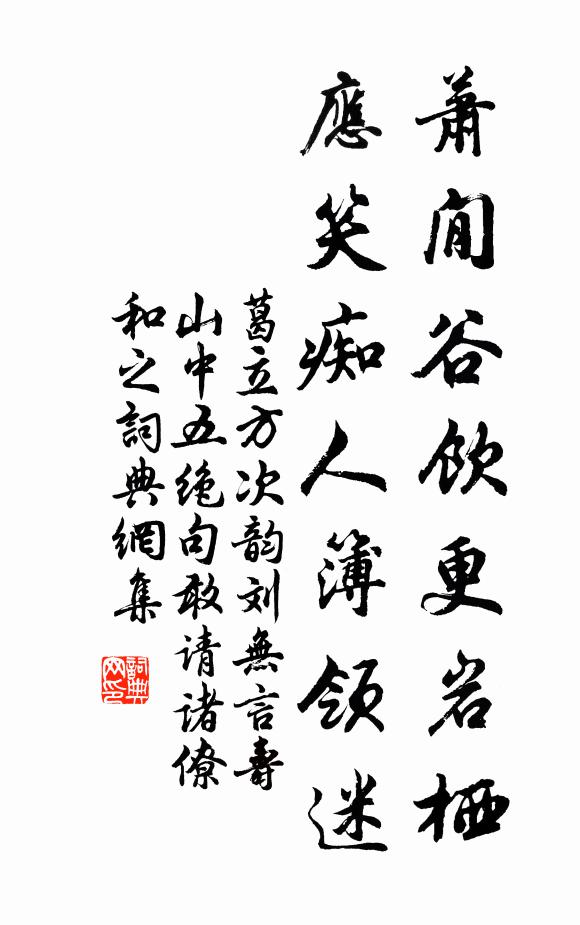 蕭閒谷飲更岩栖
應笑痴人簿領迷
葛立方次韵刘無言壽
山中五绝句敢请诸僚
和之詞典網集
詞典网印